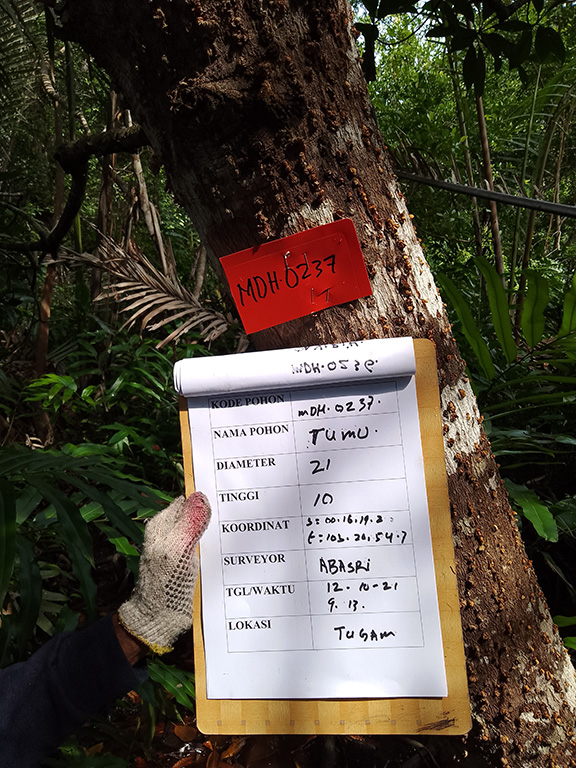 MDH.0237
MDH.0236.
KODE POHON MDH.0237.
NAMA POHON TUMU
DIAMETER 21
TINGGI 10
KOORDINAT S=00.16.19.2=
E=103.20.54.7
SURVEYOR ABASRI
TGL/WAKTU 12.10-21
9.13.
LOKASI TUGAM